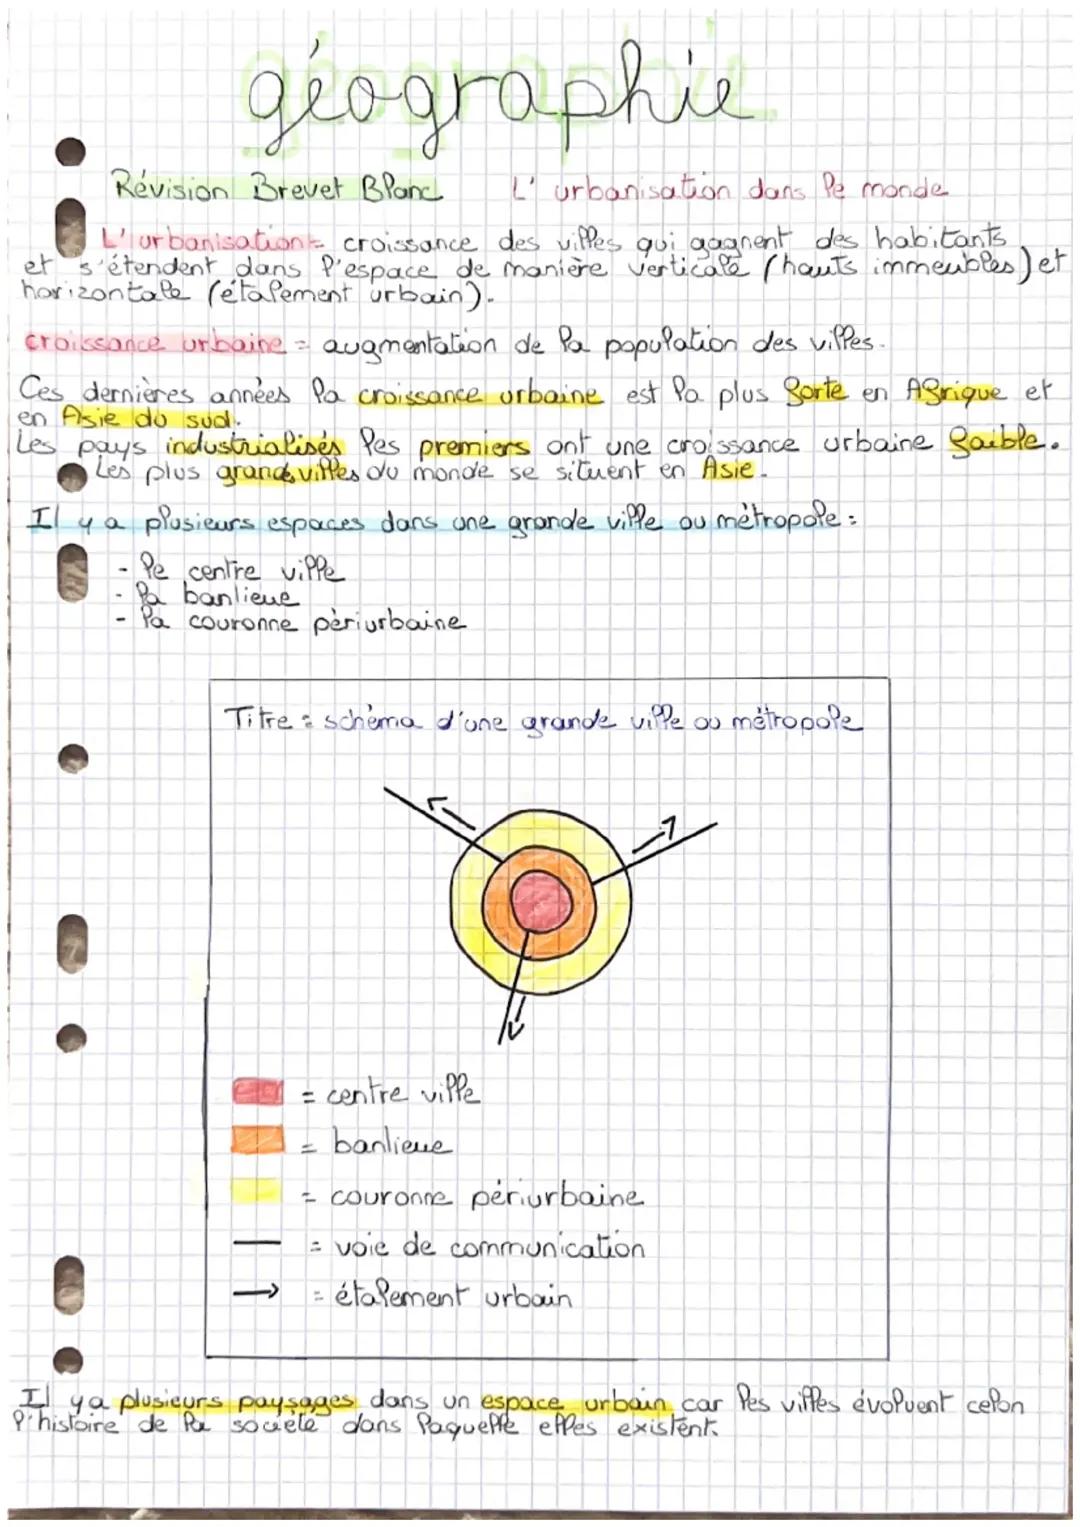 géographie
Révision Brevet Blanc L'urbanisation dans le monde
L'urbanisation = croissance des villes qui gagnent des habitants
et s'étendent dans l'espace de manière verticale (hauts immeubles) et
horizontale (étalement urbain).
croissance urbaine = augmentation de la population des villes.
Ces dernières années la croissance urbaine est la plus forte en Afrique et
en Asie du sud.
Les pays industrialisés les premiers ont une croissance urbaine faible.
Les plus grandes villes du monde se situent en Asie.
Il y a plusieurs espaces dans une grande ville ou métropole :
- le centre ville
- la banlieue
- la couronne périurbaine
Titre : schéma d'une grande ville ou métropole
= centre ville
= banlieue
= couronne périurbaine
= voie de communication
= étalement urbain
Il y a plusieurs paysages dans un espace urbain car les villes évoluent celon
l'histoire de la société dans laquelle elles existent.